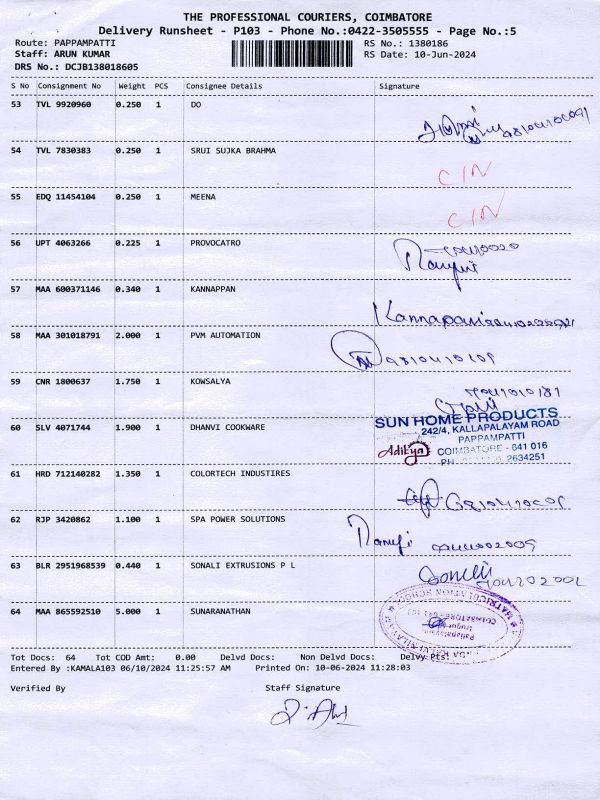 THE PROFESSIONAL COURIERS, COIMBATORE
Delivery Runsheet - P103 - Phone No.:0422-3505555 - Page No.:5
Route: PAPPAMPATTI RS No.: 1380186
Staff: ARUN KUMAR RS Date: 10-Jun-2024
DRS No.: DCJB138018605
S No Consignment No Weight PCS Consignee Details Signature
53 TVL 9920960 0.250 1 DO
54 TVL 7830383 0.250 1 SRUI SUJKA BRAHMA C/N
55 EDQ 11454104 0.250 1 MEENA C/N
56 UPT 4063266 0.225 1 PROVOCATRO
57 MAA 600371146 0.340 1 KANNAPPAN Kannapan
58 MAA 301018791 2.000 1 PVM AUTOMATION
59 CNR 1800637 1.750 1 KOWSALYA
60 SLV 4071744 1.900 1 DHANVI COOKWARE
SUN HOME PRODUCTS
242/4, KALLAPALAYAM ROAD
PAPPAMPATTI
Aditya COIMBATORE - 641 016
PH 2634251
61 HRD 712140282 1.350 1 COLORTECH INDUSTIRES
62 RJP 3420862 1.100 1 SPA POWER SOLUTIONS
63 BLR 2951968539 0.440 1 SONALI EXTRUSIONS P L
64 MAA 865592510 5.000 1 SUNARANATHAN
MATRICULATION SCHOOL
COIMBATORE
Tot Docs: 64 Tot COD Amt: 0.00 Delvd Docs: Non Delvd Docs: Delvy Pts:
Entered By :KAMALA103 06/10/2024 11:25:57 AM Printed On: 10-06-2024 11:28:03
Verified By Staff Signature